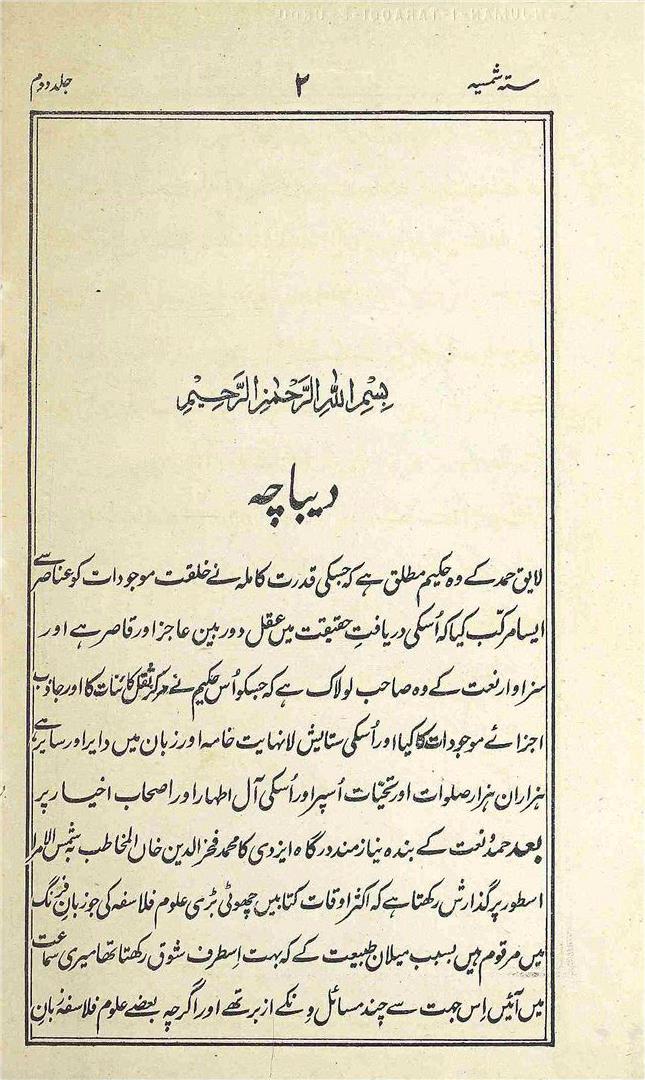 ستہ شمسیہ ۲ جلد دوم
بِسْمِ اللهِ الرَّحْمٰنِ الرَّحِيْمِ
دیباچہ
لایق حمد کے وہ حکیم مطلق ہے کہ جسکی قدرت کاملہ نے خلقت موجودات کو عناصر سے
ایسا مرکب کیا کہ اُسکی دریافت حقیقت میں عقل دوربین عاجز اور قاصر ہے اور
سزاوار نعت کے وہ صاحب لولاک ہے کہ جسکو اُس حکیم نے مرکز ثقل کائنات کا اور جاذب
اجزائے موجودات کا کیا اور اُسکی ستایش لانہایت خامہ اور زبان میں دایر اور سایر ہے
ہزاران ہزار صلوات اور تحیّات اُسپر اور اُسکی آل اطہار اور اصحاب اخیار پر
بعد حمد و نعت کے بندہ نیازمند درگاہ ایزدی کا محمد فخرالدین خان المخاطب بہ شمس الامرا
اسطور پر گذارش رکھتا ہے کہ اکثر اوقات کتابیں چھوٹی بڑی علوم فلاسفہ کی جو زبان فرنگ
میں مرقوم ہیں بسبب میلان طبیعت کے کہ بہت اِسطرف شوق رکھتا تھا میری سماعت
میں آئیں اِس جہت سے چند مسائل ونکے ازبر تھے اور اگرچہ بعضے علوم فلاسفہ زبان